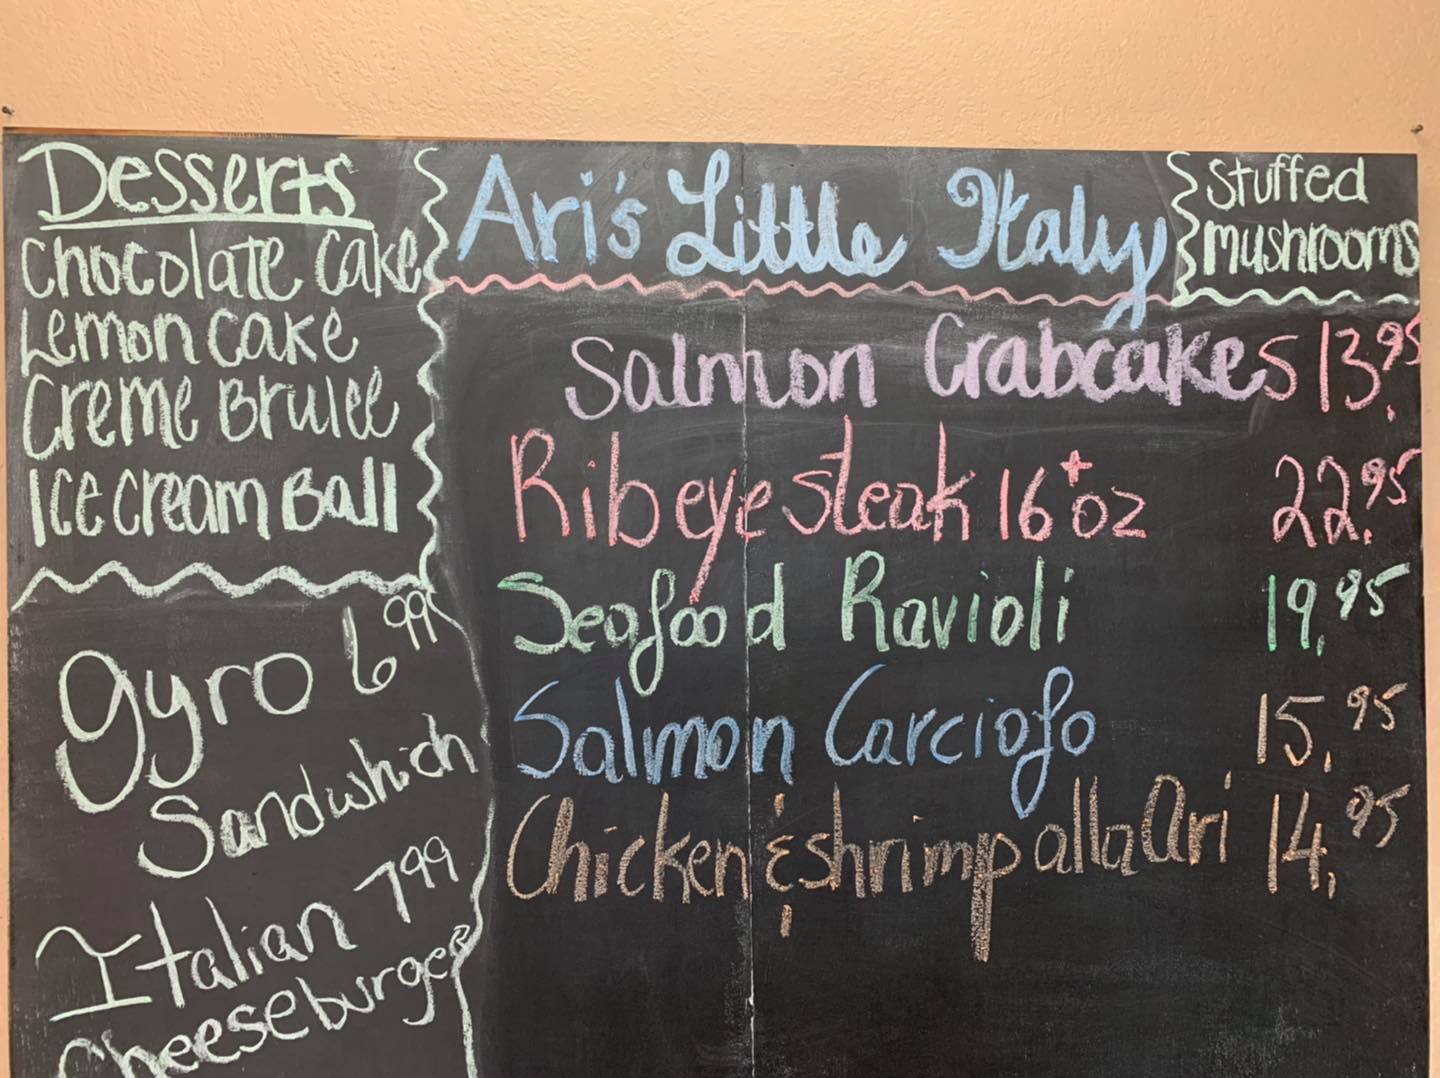 Desserts
Chocolate Cake
Lemon Cake
Creme Brulee
Ice Cream Ball
Gyro 6 99
Sandwhich
Italian 7 99
Cheeseburger
Ari's Little Italy
Salmon Crabcakes 13.95
Ribeye steak 16+oz 22.95
Seafood Ravioli 19.95
Salmon Carciofo 15.95
Chicken & shrimp alla Ari 14.95
Stuffed
mushrooms